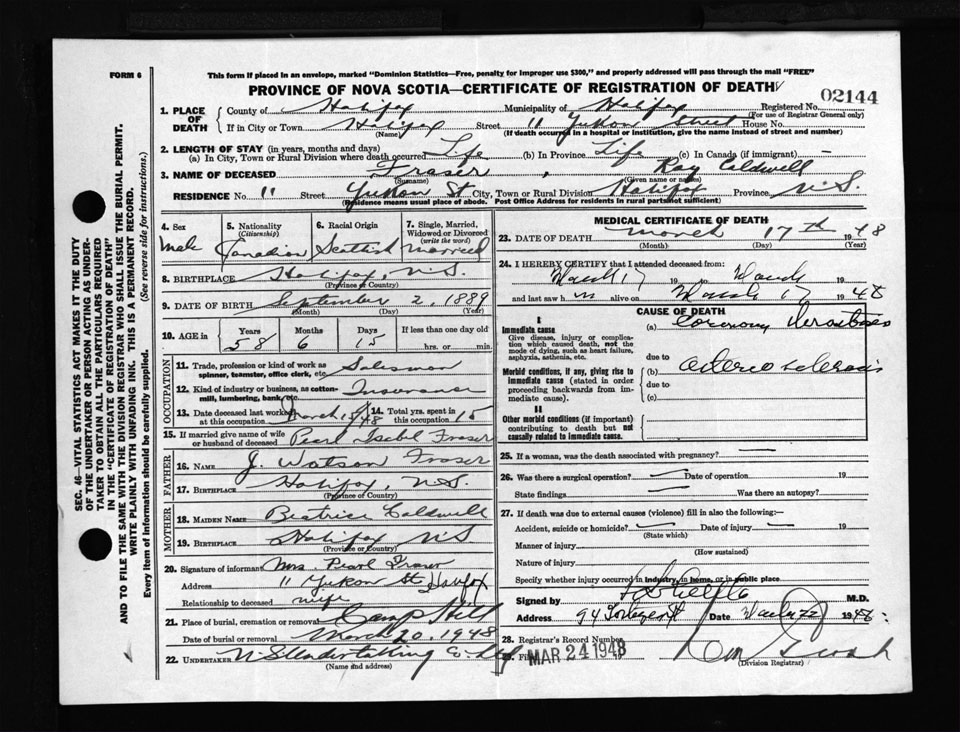 FORM 6
This form if placed in an envelope, marked "Dominion Statistics—Free, penalty for improper use $300," and properly addressed will pass through the mail "FREE"
PROVINCE OF NOVA SCOTIA—CERTIFICATE OF REGISTRATION OF DEATH
02144
1. PLACE OF DEATH
County of Halifax Municipality of Halifax Registered No.
(For use of Registrar General only)
If in City or Town Halifax Street 11 Yukon Street House No.
(Name) (If death occurred in a hospital or institution, give the name instead of street and number)
2. LENGTH OF STAY (in years, months and days)
(a) In City, Town or Rural Division where death occurred Life (b) In Province Life (c) In Canada (if immigrant) —
3. NAME OF DECEASED Fraser, Ray Caldwell
(Surname) (Given name or names)
RESIDENCE No. 11 Street Yukon St City, Town or Rural Division Halifax Province N.S.
(Residence means usual place of abode. Post Office Address for residents in rural parts not sufficient)
SEC. 46—VITAL STATISTICS ACT MAKES IT THE DUTY
OF THE UNDERTAKER OR PERSON ACTING AS UNDER-
TAKER TO OBTAIN ALL THE PARTICULARS REQUIRED
IN THE "CERTIFICATE OF REGISTRATION OF DEATH"
AND TO FILE THE SAME WITH THE DIVISION REGISTRAR WHO SHALL ISSUE THE BURIAL PERMIT.
WRITE PLAINLY WITH UNFADING INK. THIS IS A PERMANENT RECORD.
Every item of information should be carefully supplied. (See reverse side for instructions.)
4. Sex 5. Nationality (Citizenship) 6. Racial Origin 7. Single, Married, Widowed or Divorced (write the word)
Male Canadian Scottish Married
8. BIRTHPLACE Halifax, N.S.
(Province or Country)
9. DATE OF BIRTH September 2, 1889
(Month) (Day) (Year)
10. AGE IN Years Months Days If less than one day old
58 6 15 hrs. or min.
OCCUPATION
11. Trade, profession or kind of work as spinner, teamster, office clerk, etc. Salesman
12. Kind of industry or business, as cotton-mill, lumbering, bank, etc. Insurance
13. Date deceased last worked at this occupation March 1948 14. Total yrs. spent in this occupation 15
15. If married give name of wife or husband of deceased Pearl Isabel Fraser
FATHER
16. NAME J. Watson Fraser
17. BIRTHPLACE Halifax, N.S.
(Province or Country)
MOTHER
18. MAIDEN NAME Beatrice Caldwell
19. BIRTHPLACE Halifax N.S
(Province or Country)
20. Signature of informant Mrs. Pearl Fraser
Address 11 Yukon St Halifax
Relationship to deceased wife
21. Place of burial, cremation or removal Camp Hill
Date of burial or removal March 20, 1948
22. UNDERTAKER N S Undertaking Co. Ltd
(Name and address)
MEDICAL CERTIFICATE OF DEATH
23. DATE OF DEATH March 17th 1948
(Month) (Day) (Year)
24. I HEREBY CERTIFY that I attended deceased from:
March 17 19 to March 19
and last saw h m alive on March 17 1948
CAUSE OF DEATH
I
Immediate cause (a) Coronary
Give disease, injury or complication which caused death, not the mode of dying, such as heart failure, asphyxia, asthenia, etc.
due to
Morbid conditions, if any, giving rise to immediate cause (stated in order proceeding backwards from immediate cause). (b)
due to
(c)
II
Other morbid conditions (if important) contributing to death but not causally related to immediate cause.
25. If a woman, was the death associated with pregnancy? —
26. Was there a surgical operation? — Date of operation 19
State findings — Was there an autopsy?
27. If death was due to external causes (violence) fill in also the following:—
Accident, suicide or homicide? — Date of injury — 19
(State which)
Manner of injury
(How sustained)
Nature of injury
Specify whether injury occurred in industry, in home, or in public place
Signed by M.D.
Address 94 Date 1948
28. Registrar's Record Number
MAR 24 1948
(Division Registrar)